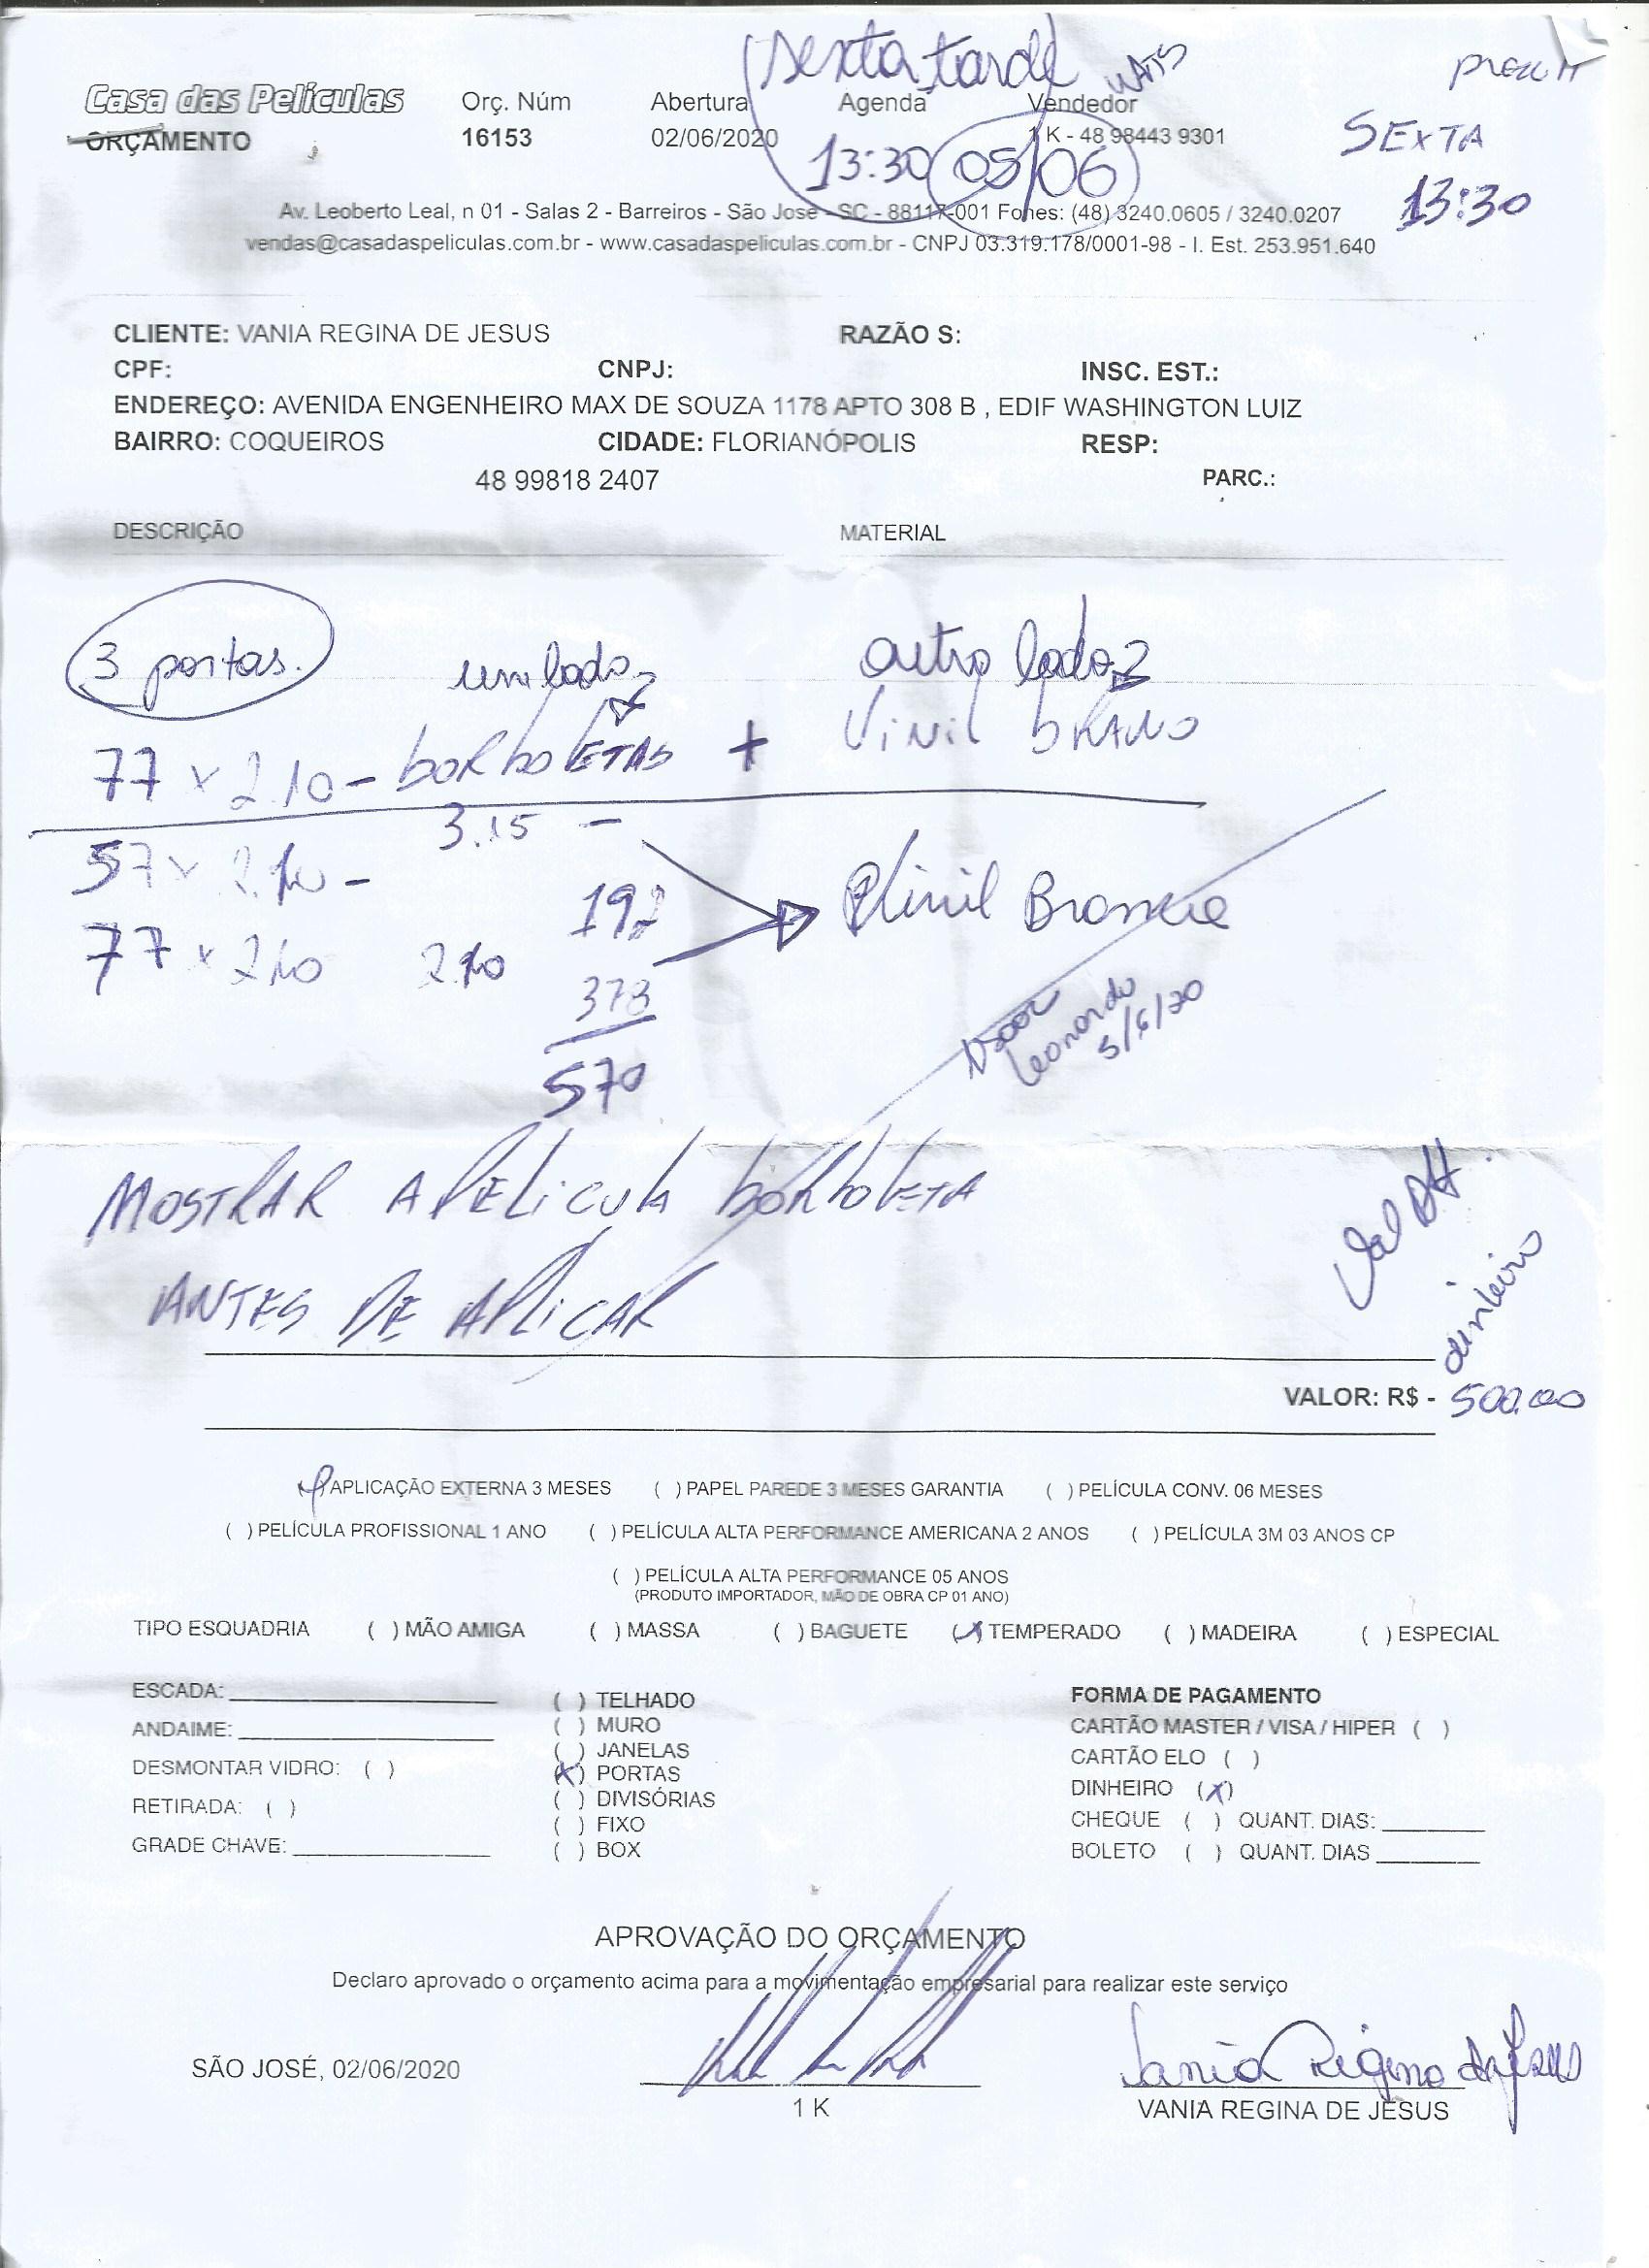 sexta tarde
Casa das Películas Orç. Núm Abertura Agenda Vendedor
ORÇAMENTO 16153 02/06/2020 1 K - 48 98443 9301
SEXTA
13:30 05/06
13:30
Av. Leoberto Leal, n 01 - Salas 2 - Barreiros - São José - SC - 88117-001 Fones: (48) 3240.0605 / 3240.0207
vendas@casadaspeliculas.com.br - www.casadaspeliculas.com.br - CNPJ 03.319.178/0001-98 - I. Est. 253.951.640
CLIENTE: VANIA REGINA DE JESUS RAZÃO S:
CPF: CNPJ: INSC. EST.:
ENDEREÇO: AVENIDA ENGENHEIRO MAX DE SOUZA 1178 APTO 308 B , EDIF WASHINGTON LUIZ
BAIRRO: COQUEIROS CIDADE: FLORIANÓPOLIS RESP:
48 99818 2407 PARC.:
DESCRIÇÃO MATERIAL
3 portas. um lado outro lado
77 x 2.10 - borboLETAS + Vinil
3.15 -
57 x 2.10 -
192 Vinil Branco
77 x 2.10 2.10
378
Leonardo
5/6/20
570
MOSTRAR A PELICULA borboLETA
ANTES DE APLICAR
dinheiro
VALOR: R$ - 500.00
( ) APLICAÇÃO EXTERNA 3 MESES ( ) PAPEL PAREDE 3 MESES GARANTIA ( ) PELÍCULA CONV. 06 MESES
( ) PELÍCULA PROFISSIONAL 1 ANO ( ) PELÍCULA ALTA PERFORMANCE AMERICANA 2 ANOS ( ) PELÍCULA 3M 03 ANOS CP
( ) PELÍCULA ALTA PERFORMANCE 05 ANOS
(PRODUTO IMPORTADOR, MÃO DE OBRA CP 01 ANO)
TIPO ESQUADRIA ( ) MÃO AMIGA ( ) MASSA ( ) BAGUETE (x) TEMPERADO ( ) MADEIRA ( ) ESPECIAL
ESCADA:
ANDAIME:
DESMONTAR VIDRO: ( )
RETIRADA: ( )
GRADE CHAVE:
( ) TELHADO
( ) MURO
( ) JANELAS
(x) PORTAS
( ) DIVISÓRIAS
( ) FIXO
( ) BOX
FORMA DE PAGAMENTO
CARTÃO MASTER / VISA / HIPER ( )
CARTÃO ELO ( )
DINHEIRO (x)
CHEQUE ( ) QUANT. DIAS:
BOLETO ( ) QUANT. DIAS
APROVAÇÃO DO ORÇAMENTO
Declaro aprovado o orçamento acima para a movimentação empresarial para realizar este serviço
Vania Regina de Jesus
SÃO JOSÉ, 02/06/2020
1 K VANIA REGINA DE JESUS